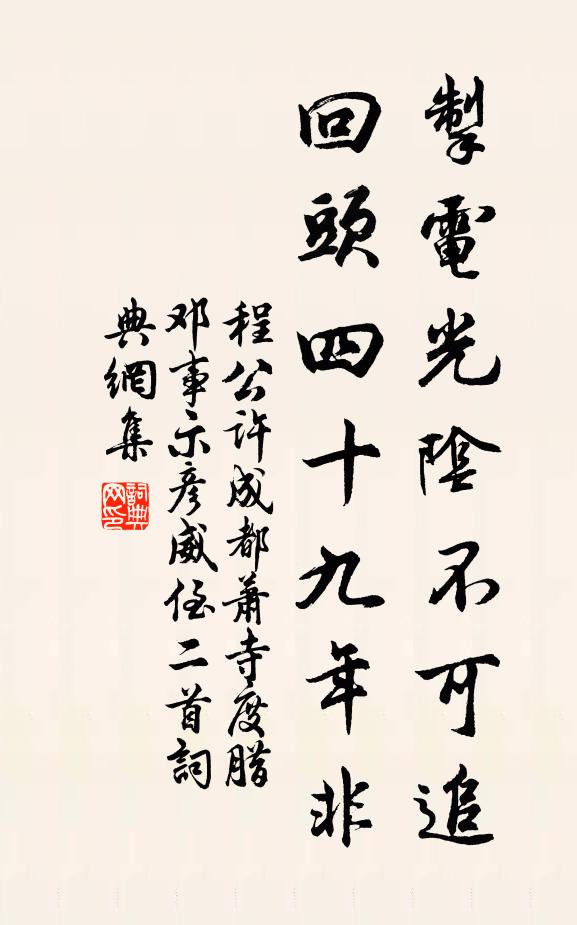 掣電光陰不可追
回頭四十九年非
程公许成都蕭寺度腊
邓事示彦威侄二首詞
典網集
詞典
网印